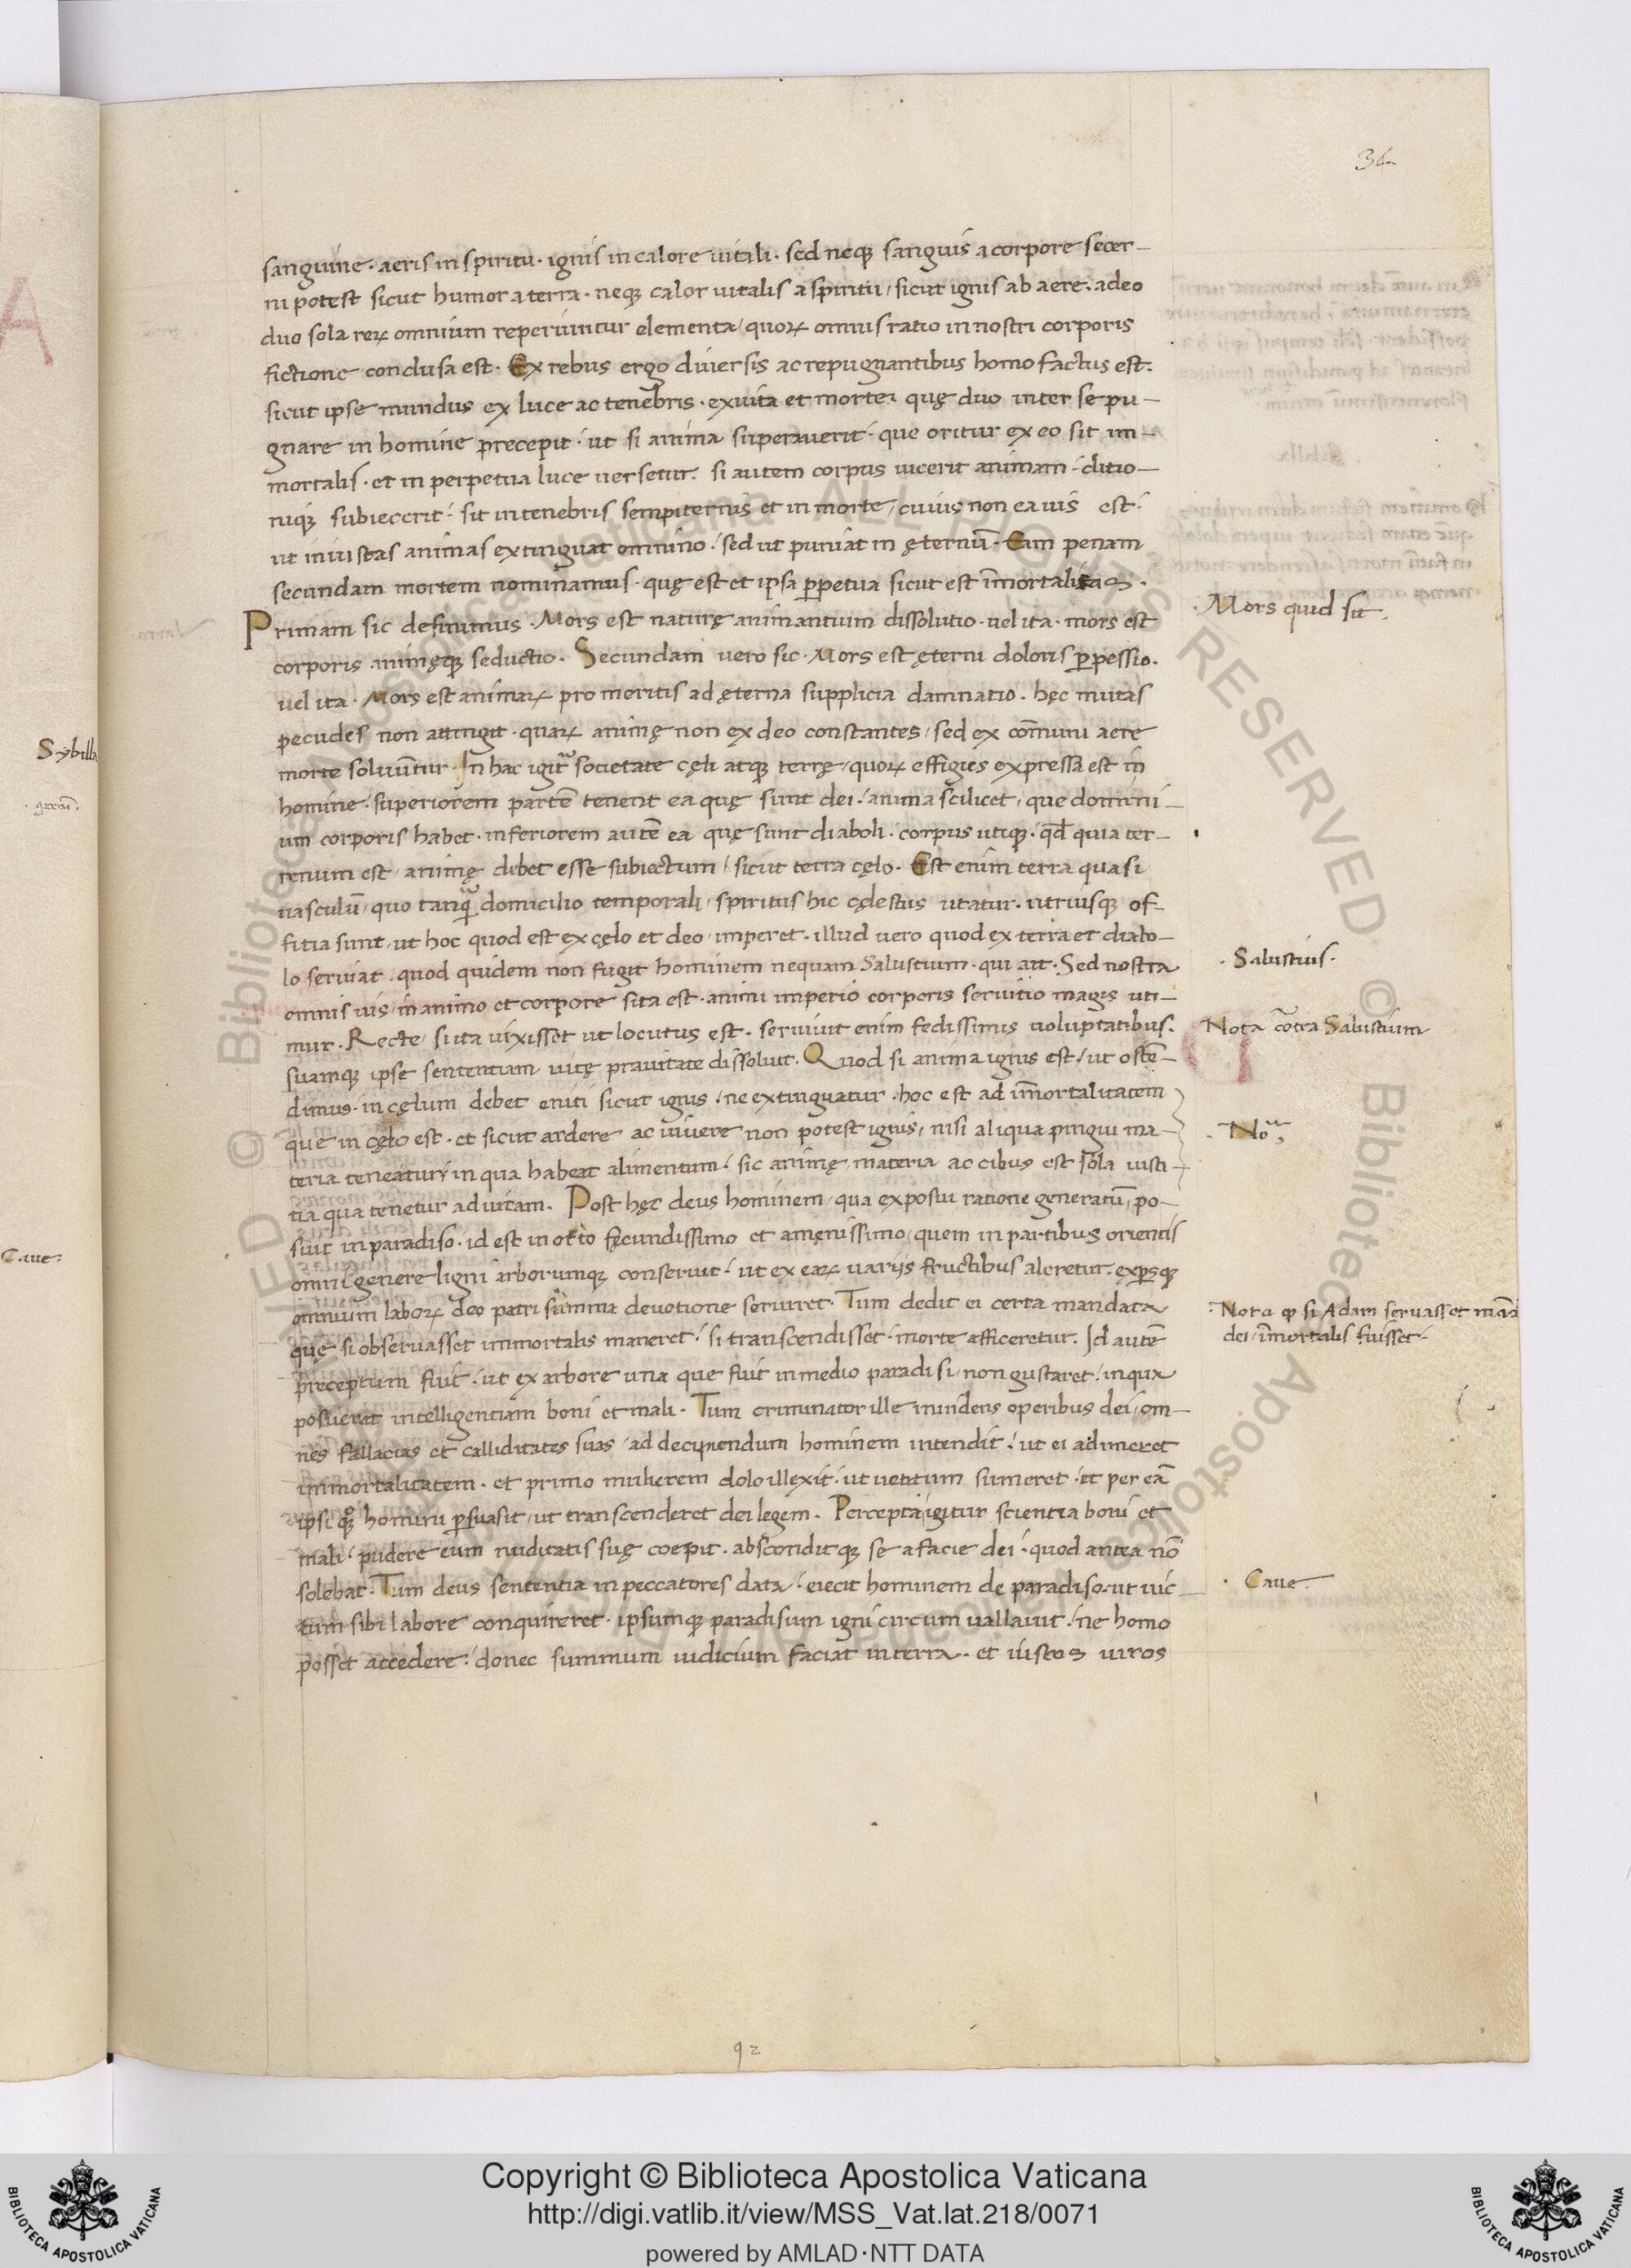 36
sanguine · aeris in spiritu · ignis in calore uitali · sed neqꝫ sanguis a corpore secer-
ni potest sicut humor a terra · neqꝫ calor uitalis a spiritu / sicut ignis ab aere · adeo
duo sola reꝝ omnium reperiuntur elementa / quoꝝ omnis ratio in nostri corporis
fictione conclusa est · Ex rebus ergo diuersis ac repugnantibus homo factus est ·
sicut ipse mundus ex luce ac tenebris · ex uita et morte · quę duo inter se pu-
gnare in homine precepit · ut si anima superauerit · que oritur ex eo sit im-
mortalis · et in perpetua luce uersetur · si autem corpus uicerit animam · ditio-
niqꝫ subiecerit · sit in tenebris sempiternis et in morte / cuius non ea uis est ·
ut iniustas animas extinguat omnino · sed ut puniat in ęternū · Eam penam
secundam mortem nominamus · quę est et ipsa ꝑpetua sicut est īmortalitas ·
Primam sic definimus · Mors est naturę animantium dissolutio · uel ita · mors est
corporis animęqꝫ seductio · Secundam uero sic · Mors est ęterni doloris ꝑpessio ·
uel ita · Mors est animaꝝ pro meritis ad ęterna supplicia damnatio · hęc mutas
pecudes non attingit · quaꝝ animę non ex deo constantes / sed ex cōmuni aere
morte soluūtur · In hac igitᷣ societate cęli atqꝫ terrę / quoꝝ effigies expressa est in
homine · superiorem partē tenent ea quę sunt dei · anima scilicet / que domini-
um corporis habet · inferiorem autē ea quę sunt diaboli · corpus utiqꝫ · qđ quia ter-
renum est / animę debet esse subiectum / sicut terra cęlo · Est enim terra quasi
uasculū / quo tanqᷓ domicilio temporali / spiritus hic cęlestis utatur · utriusqꝫ of-
fitia sunt / ut hoc quod est ex cęlo et deo / imperet · illud uero quod ex terra et diabo-
lo seruiat · quod quidem non fugit hominem nequam Salustium · qui ait · Sed nostra
omnis uis in animo et corpore sita est · animi imperio corporis seruitio magis uti-
mur · Recte / si ita uixisset ut locutus est · seruiuit enim fedissimis uoluptatibus ·
suamqꝫ ipse sententiam uitę prauitate dissoluit · Quod si anima ignis est / ut ostē-
dimus · in cęlum debet eniti sicut ignis / ne extinguatur · hoc est ad īmortalitatem
que in cęlo est · et sicut ardere ac uiuere non potest ignis / nisi aliqua pingui ma-
teria teneatur / in qua habeat alimentum · sic animę materia ac cibus est sola iusti-
tia qua tenetur ad uitam · Post hęc deus hominem / qua exposui ratione generatū / po-
suit in paradiso · id est in orto fęcundissimo et amęnissimo / quem in partibus orientis
omni genere ligni arborumqꝫ conseruit · ut ex eaꝝ uariis fructibus aleretur · exꝑsqꝫ
omnium laboꝝ deo patri summa deuotione seruiret · Tum dedit ei certa mandata
quę si obseruasset immortalis maneret · si transcendisset · morte afficeretur · Id autē
preceptum fuit · ut ex arbore una que fuit in medio paradisi / non gustaret / in qua
posuerat intelligentiam boni et mali · Tum criminator ille inuidens operibus dei / om-
nes fallacias et calliditates suas / ad decipiendum hominem intendit · ut ei adimeret
immortalitatem · et primo mulierem dolo illexit · ut uetitum sumeret · et per eā
ipsi qꝫ homini ꝑsuasit / ut transcenderet dei legem · Percepta igitur scientia boni et
mali · pudere eum nuditatis suę coepit · absconditqꝫ se a facie dei · quod antea nō
solebat · Tum deus sententia in peccatores data · eiecit hominem de paradiso · ut uic-
tum sibi labore conquireret · ipsumqꝫ paradisum igni circum uallauit · ne homo
posset accedere · donec summum iudicium faciat in terra · et iustos uiros
· Mors quid sit ·
· Salustius ·
Nota cōtra Salustium
· Noᵃ
Nota ꝙ si Adam seruasset mādͣ
dei / īmortalis fuisset ·
· Caue ·
Sybilla
· grecū ·
Caue ·
A
92
Copyright © Biblioteca Apostolica Vaticana
http://digi.vatlib.it/view/MSS_Vat.lat.218/0071
powered by AMLAD·NTT DATA
BIBLIOTECA APOSTOLICA VATICANA
BIBLIOTECA APOSTOLICA VATICANA